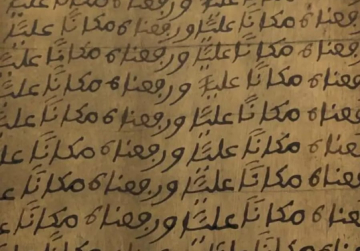 رفعناه مكانًا عليًّا
ورفعناه مكانًا عليًّا ورفعناه
رفعناه مكانًا عليًّا ورفعناه مكانًا
رفعناه مكانًا عليًّا ورفعناه مكانًا عليًّا
ورفعناه مكانًا عليًّا ورفعناه مكانًا
ورفعناه مكانًا عليًّا ورفعناه مكانًا عليًّا
ورفعناه مكانًا عليًّا ورفعناه مكانًا
ورفعناه مكانًا عليًّا ورفعناه مكانًا